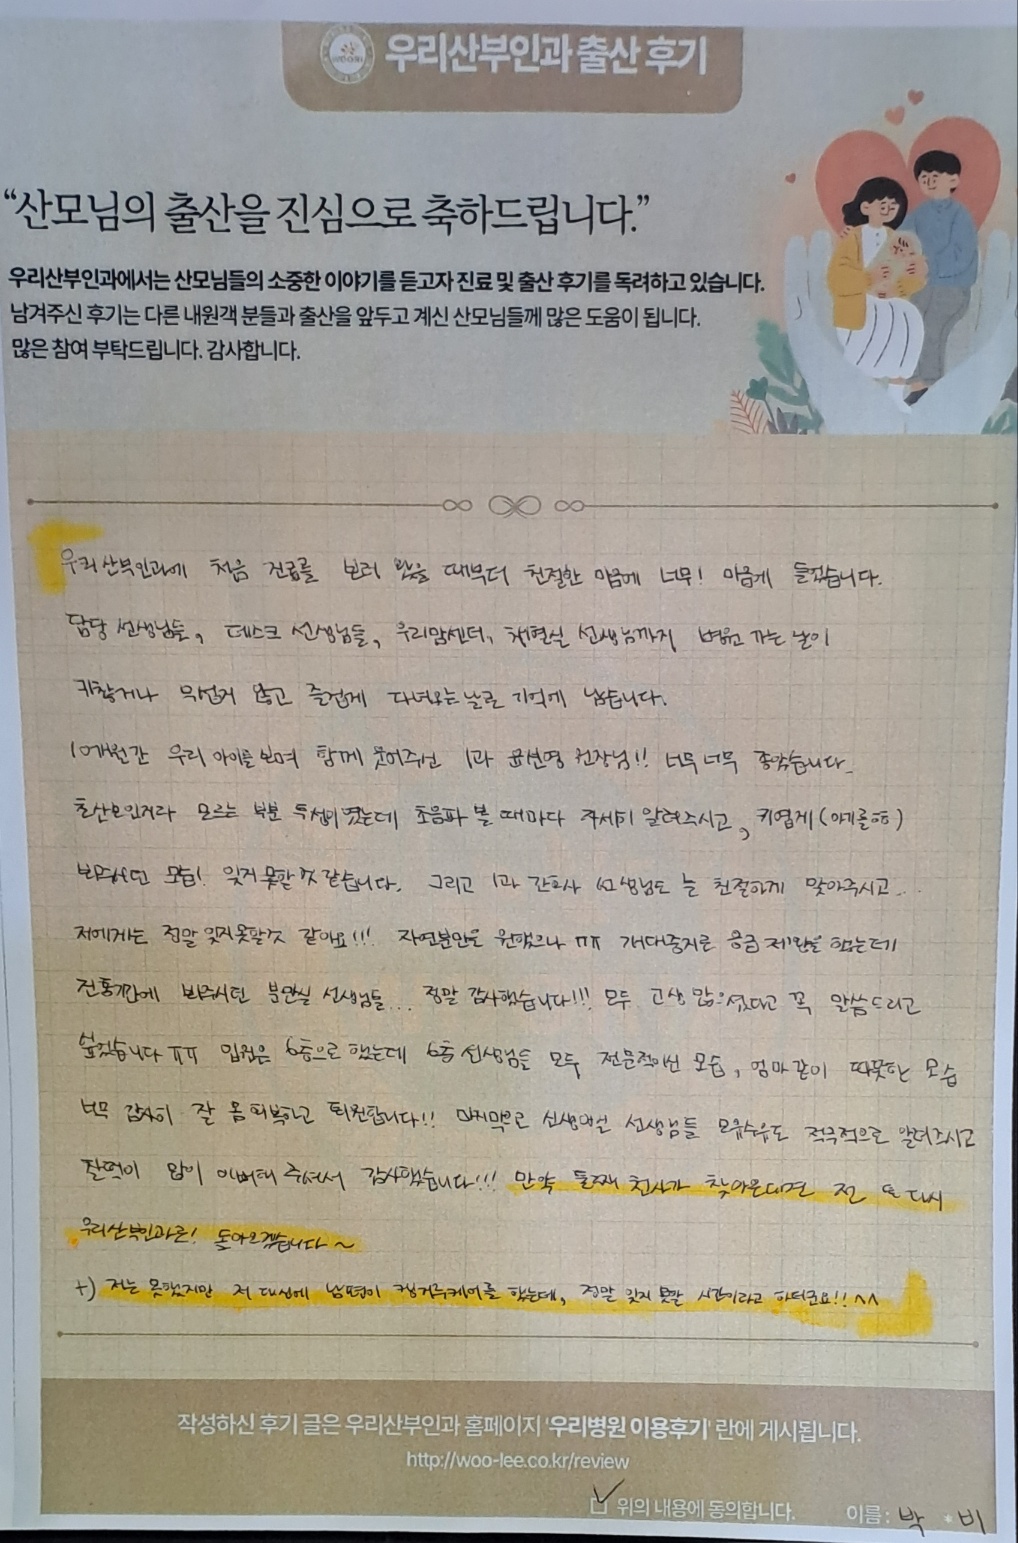 우리산부인과 출산 후기
“산모님의 출산을 진심으로 축하드립니다.”
우리산부인과에서는 산모님들의 소중한 이야기를 듣고자 진료 및 출산 후기를 독려하고 있습니다.
남겨주신 후기는 다른 내원객 분들과 출산을 앞두고 계신 산모님들께 많은 도움이 됩니다.
많은 참여 부탁드립니다. 감사합니다.
우리산부인과에 처음 진료를 보러 왔을 때부터 친절한 마음에 너무! 마음에 들었습니다.
담당 선생님들, 데스크 선생님들, 우리맘센터, 채혈실 선생님까지 병원 가는 날이
귀찮거나 무섭지 않고 즐겁게 다녀오는 날로 기억에 남습니다.
10개월간 우리 아이를 보며 함께 웃어주신 1과 윤선영 원장님!! 너무 너무 좋았습니다.
초산모인지라 모르는 부분 투성이였는데 초음파 볼 때마다 자세히 알려주시고, 귀엽게(아기를ㅎㅎ)
봐주시던 모습! 잊지 못할 것 같습니다. 그리고 1과 간호사 선생님도 늘 친절하게 맞아주시고...
저에게는 정말 잊지 못할 것 같아요!!! 자연분만을 원했으나 ㅠㅠ 개대중지로 응급 제왕을 했는데
진통기간에 봐주시던 분만실 선생님들... 정말 감사했습니다!!! 모두 고생 많으셨다고 꼭 말씀드리고
싶었습니다 ㅠㅠ 입원은 6층으로 했는데 6층 선생님들 모두 전문적이신 모습, 엄마같이 따뜻한 모습
너무 감사히 잘 몸 회복하고 퇴원합니다!! 마지막으로 신생아실 선생님들 모유수유도 적극적으로 알려주시고
잘먹이 맘이 이뻐해 주셔서 감사했습니다!!! 만약 둘째 천사가 찾아온다면 전 또 다시
우리산부인과로! 돌아오겠습니다~
+) 저는 못했지만 저 대신에 남편이 캥거루케어를 했는데, 정말 잊지 못할 시간이라고 하더군요!! ^^
작성하신 후기 글은 우리산부인과 홈페이지 '우리병원 이용후기' 란에 게시됩니다.
http://woo-lee.co.kr/review
위의 내용에 동의합니다. 이름 : 박 * 비